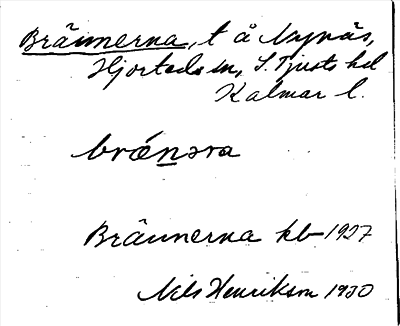 Brännerna, t å Nynäs,
Hjorteds sn, S. Tjusts hd
Kalmar l.
brǽnəra
Brännerna kb 1927
Nils Henrikson 1930